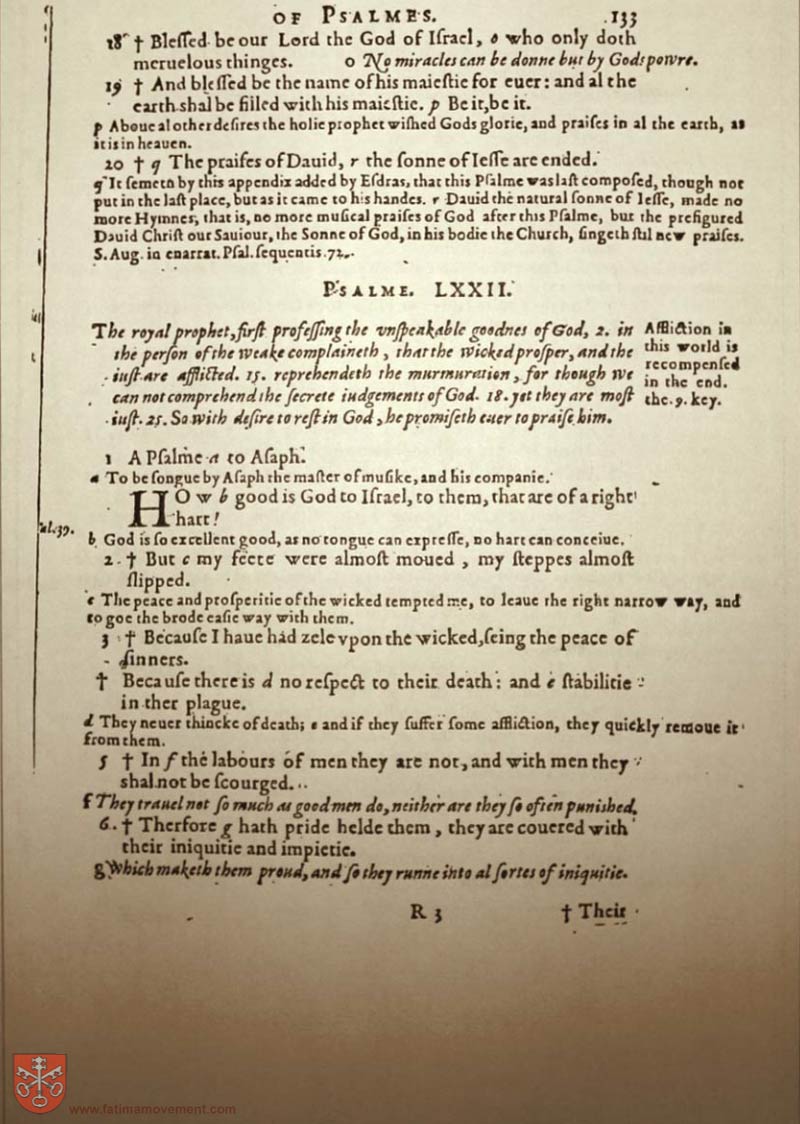 OF PSALMES. 133
18 † Bleſſed be our Lord the God of Iſrael, o who only doth
meruelous thinges. o No miracles can be donne but by Gods powre.
19 † And bleſſed be the name of his maieſtie for euer: and al the
earth shal be filled with his maieſtie. p Be it, be it.
p Aboue al other deſires the holie prophet wiſhed Gods glorie, and praiſes in al the earth, as
it is in heauen.
20 † q The praiſes of Dauid, r the ſonne of Ieſſe are ended.
q It ſemeth by this appendix added by Eſdras, that this Pſalme was laſt compoſed, though not
put in the laſt place, but as it came to his handes. r Dauid the natural ſonne of Ieſſe, made no
more Hymnes; that is, no more muſical praiſes of God after this Pſalme, but the prefigured
Dauid Chriſt our Sauiour, the Sonne of God, in his bodie the Church, ſingeth ſtil new praiſes.
S. Aug. in enarrat. Pſal. ſequentis. 72.
PSALME. LXXII.
The royal prophet, firſt profeſſing the vnſpeakable goodnes of God, 2. in
the perſon of the weake complaineth, that the wicked proſper, and the
iuſt are afflicted. 15. reprehendeth the murmuration, for though we
can not comprehend the ſecrete iudgements of God. 18. yet they are moſt
iuſt. 25. So with deſire to reſt in God, he promiſeth euer to praiſe him.
Affliction in
this world is
recompenſed
in the end.
the. 9. key.
1 A Pſalme a to Aſaph.
a To be ſongue by Aſaph the maſter of muſike, and his companie.
HOw b good is God to Iſrael, to them, that are of a right
hart!
b God is ſo excellent good, as no tongue can expreſſe, no hart can conceiue.
2. † But c my feete were almoſt moued, my ſteppes almoſt
ſlipped.
c The peace and proſperitie of the wicked tempted me, to leaue the right narrow way, and
to goe the brode eaſie way with them.
3 † Becauſe I haue had zele vpon the wicked, ſeing the peace of
ſinners.
† Becauſe there is d no reſpect to their death: and e ſtabilitie
in ther plague.
d They neuer thincke of death; e and if they ſuffer ſome affliction, they quickly remoue it
from them.
5 † In f the labours of men they are not, and with men they
shal not be ſcourged.
f They trauel not ſo much as good men do, neither are they ſo often puniſhed.
6. † Therfore g hath pride helde them, they are couered with
their iniquitie and impietie.
g Which maketh them proud, and ſo they runne into al ſortes of iniquitie.
R 3 † Their
www.fatimamovement.com